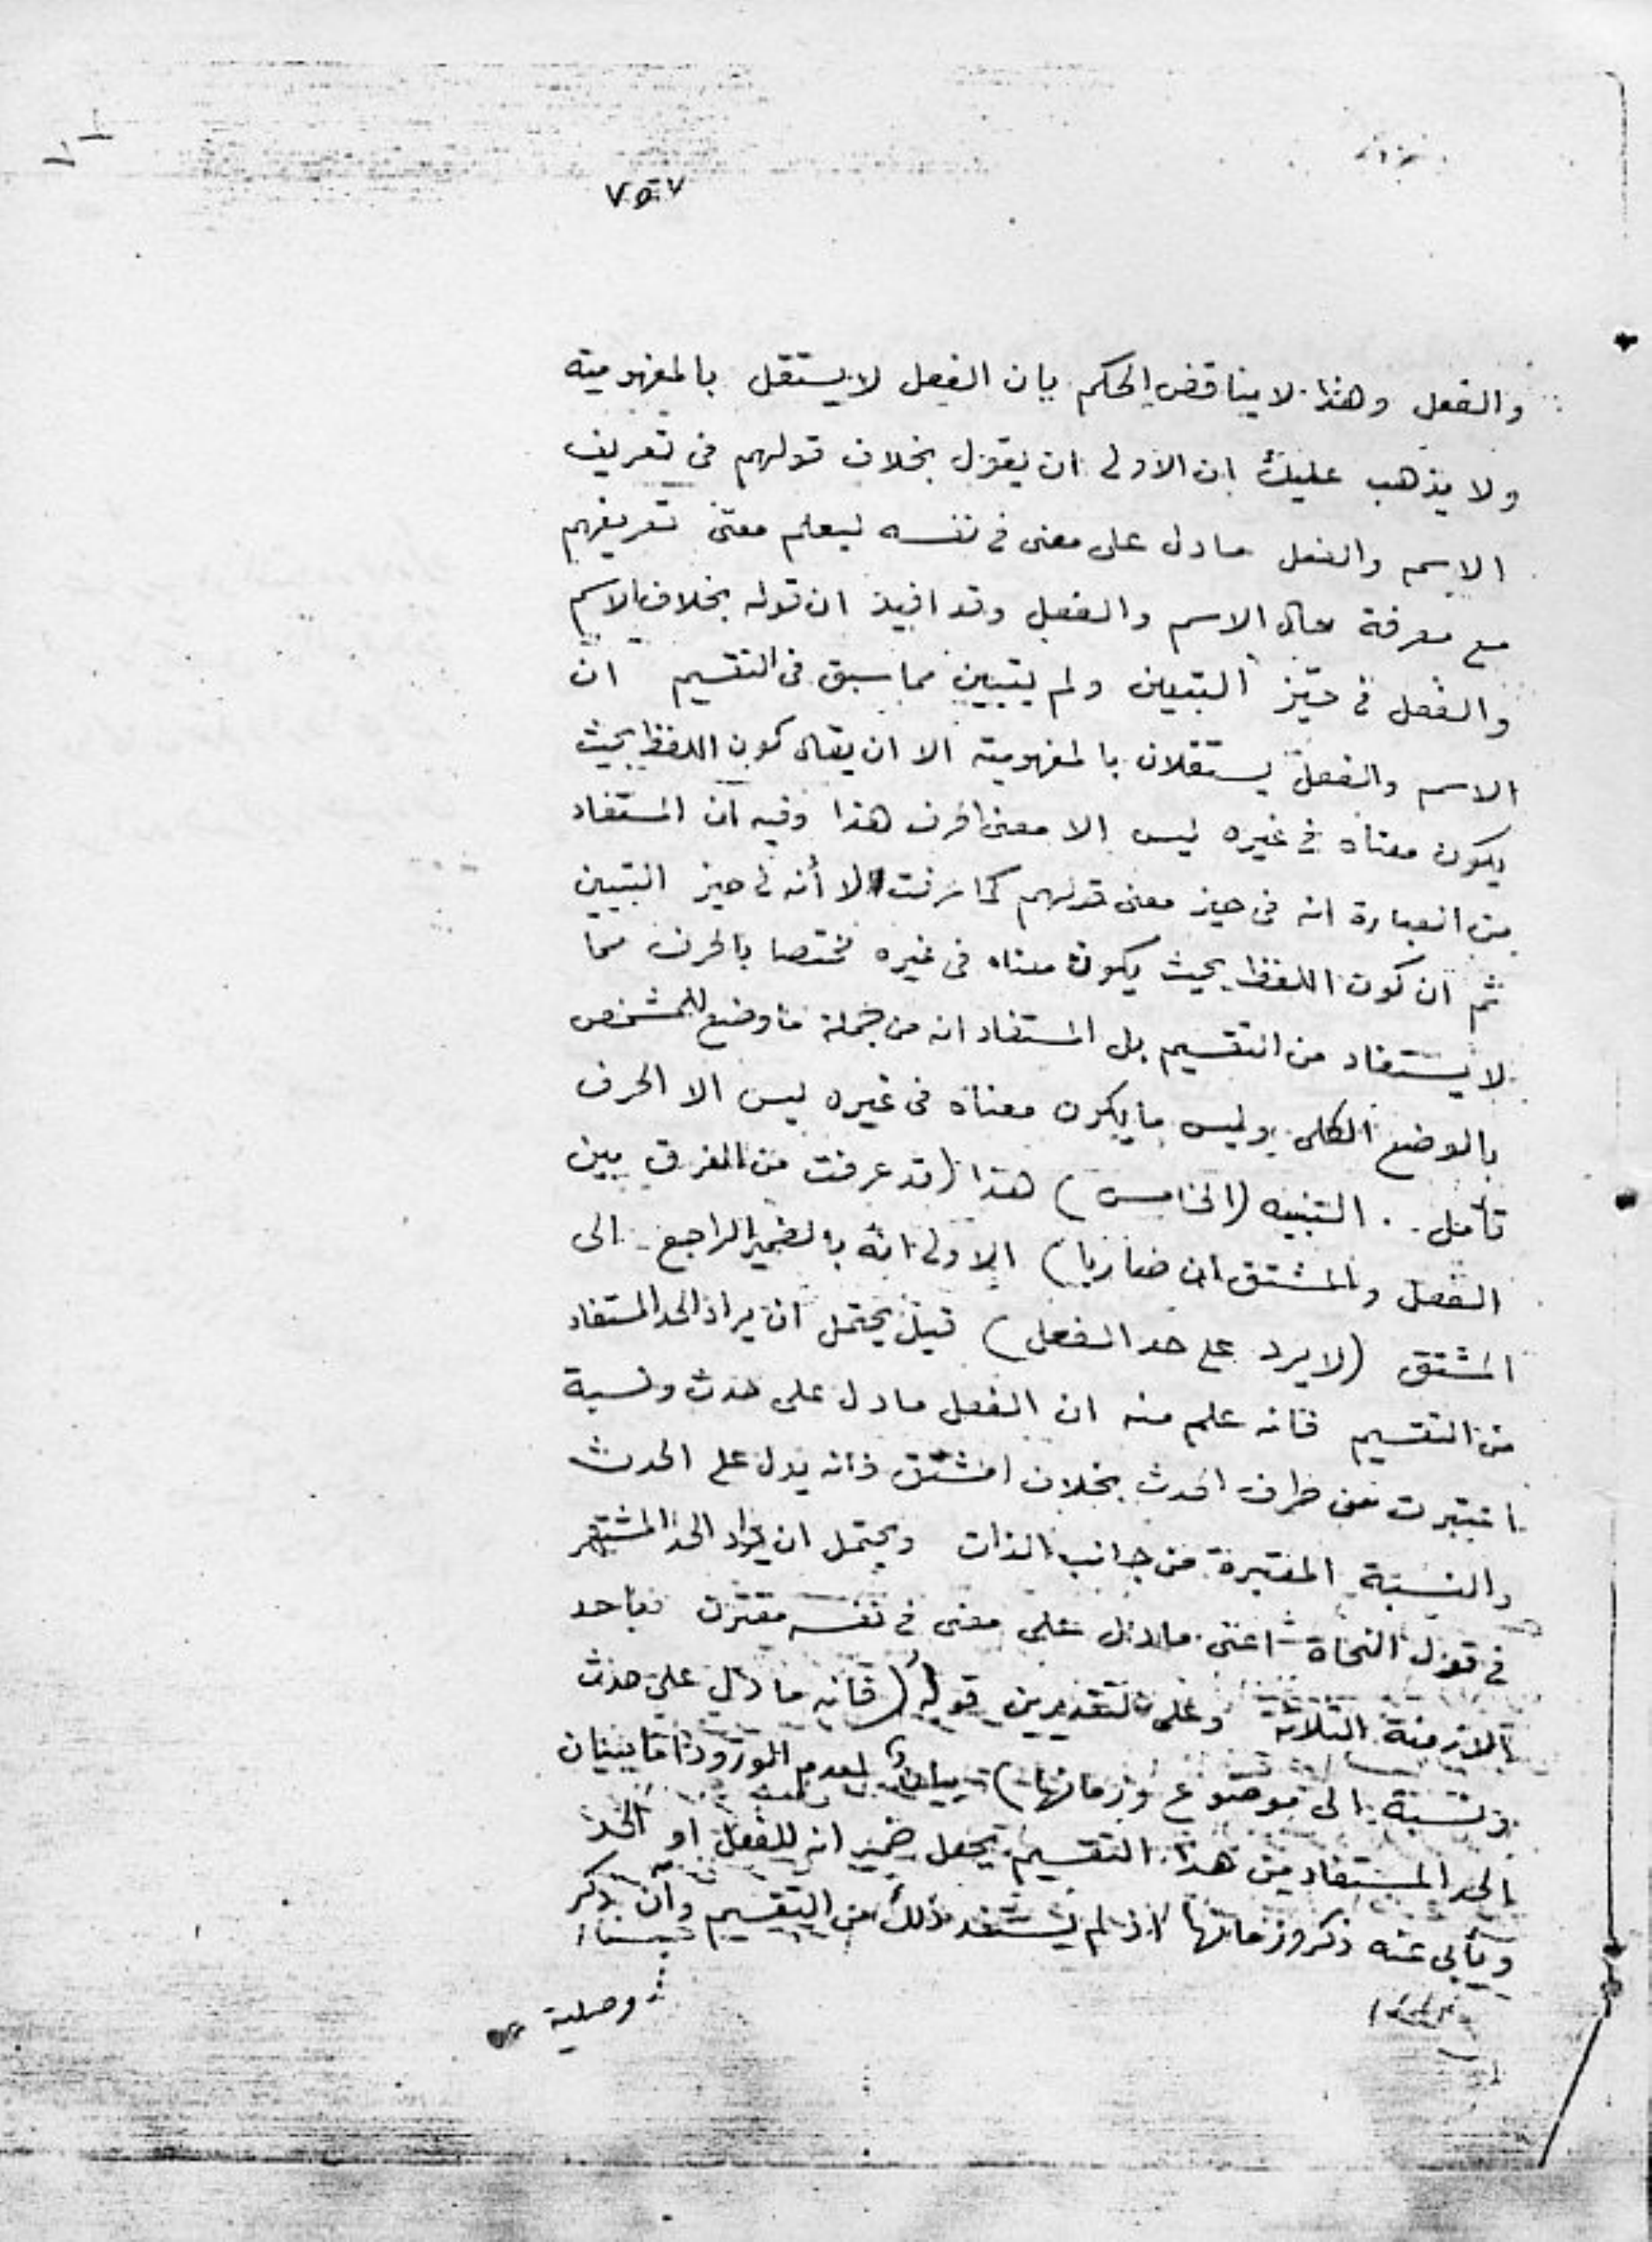 ٧٥٢٧
والفعل وهذا لا يناقض الحكم بان الفعل لا يستقل بالمفهومية
ولا يذهب عليك ان الاولى ان يقول بخلاف قولهم فى تعريف
الاسم والفعل مادل على معنى فى نفسه ليعلم معنى تعريفهم
مع معرفة حال الاسم والفعل وقد افيد ان قوله بخلاف الاسم
والفعل فى حيّز التبيين ولم يتبين مما سبق فى التقسيم ان
الاسم والفعل يستقلان بالمفهومية الا ان يقال كون اللفظ بحيث
يكون معناه فى غيره ليس الا معنى الحرف هذا وفيه ان المستفاد
من العبارة انه فى حيز معنى قولهم كما عرفت لا أنه فى حيز التبيين
ثم ان كون اللفظ بحيث يكون معناه فى غيره مختصا بالحرف مما
لا يستفاد من التقسيم بل المستفاد انه من جملة ما وضع للمشخص
بالوضع الكلى وليس ما يكون معناه فى غيره ليس الا الحرف
تأمل . التنبيه (الخامس) هذا (قد عرفت من الفرق بين
الفعل والمشتق ان ضاربا) الاولى انه بالضمير الراجع الى
المشتق (لا يرد على حد الفعل) قيل يحتمل ان يراد الحد المستفاد
من التقسيم فانه علم منه ان الفعل مادل على حدث ونسبة
اعتبرت من طرف الحدث بخلاف المشتق فانه يدل على الحدث
والنسبة المعتبرة من جانب الذات ويحتمل ان يراد الحد المشتهر
فى قول النحاة اعنى مادل على معنى فى نفسه مقترن باحد
الازمنة الثلاثة وعلى التقديرين قوله (فانه ما دل على حدث
ونسبة الى موضوع وزمانها) بيان لعدم الورود اما ببيان
الحد المستفاد من هذا التقسيم بجعل ضمير انه للفعل او الحد
ويأبى عنه ذكر وزمانها اذ لم يستفد ذلك من التقسيم وان ذكر
وصلية